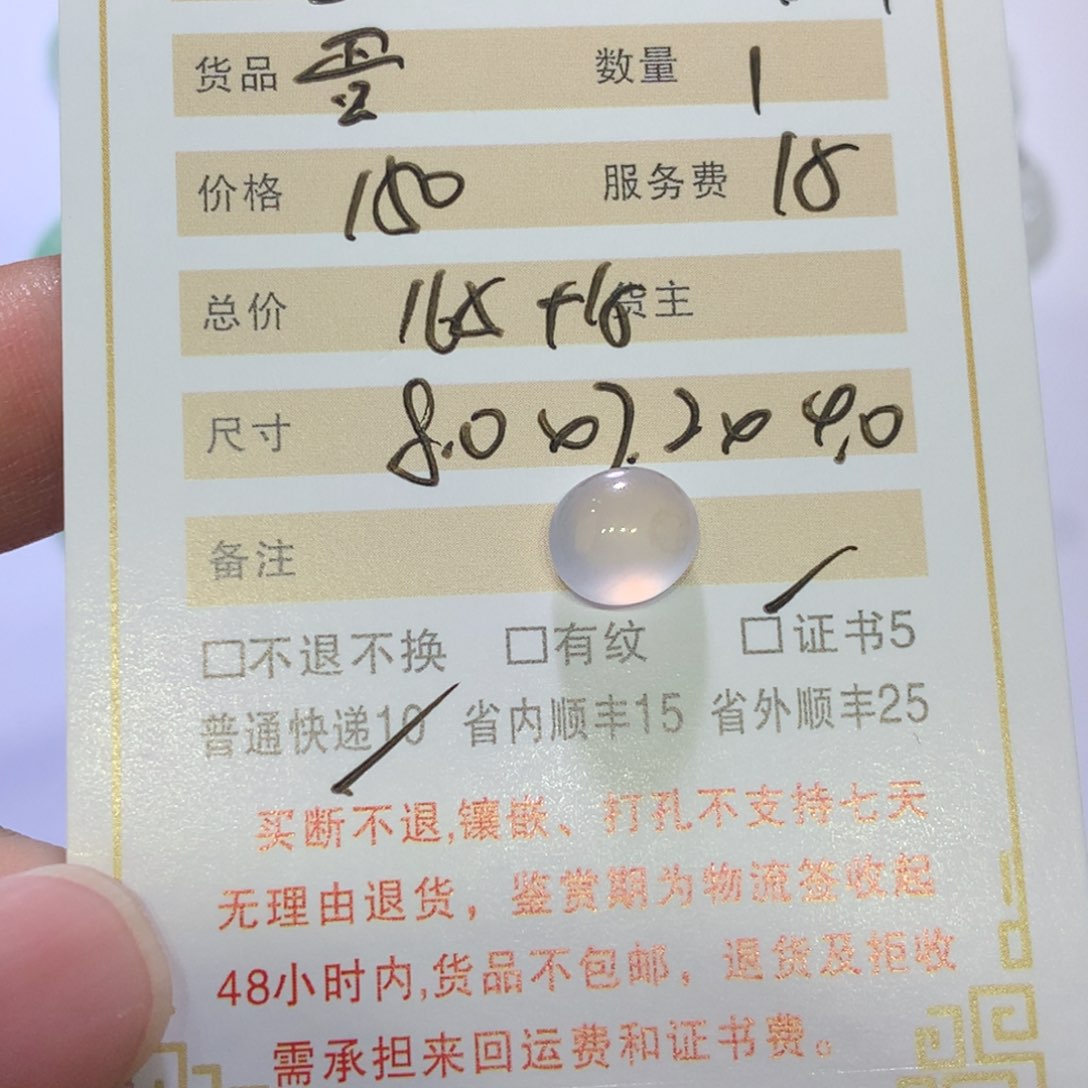 货品 蛋 数量 1
价格 150 服务费 15
总价 165 +15 货主
尺寸 8.0x7.2x4.0
备注
□不退不换 □有纹 □证书5
普通快递10 省内顺丰15 省外顺丰25
买断不退,镶嵌、打孔不支持七天
无理由退货，鉴赏期为物流签收起
48小时内,货品不包邮，退货及拒收
需承担来回运费和证书费。